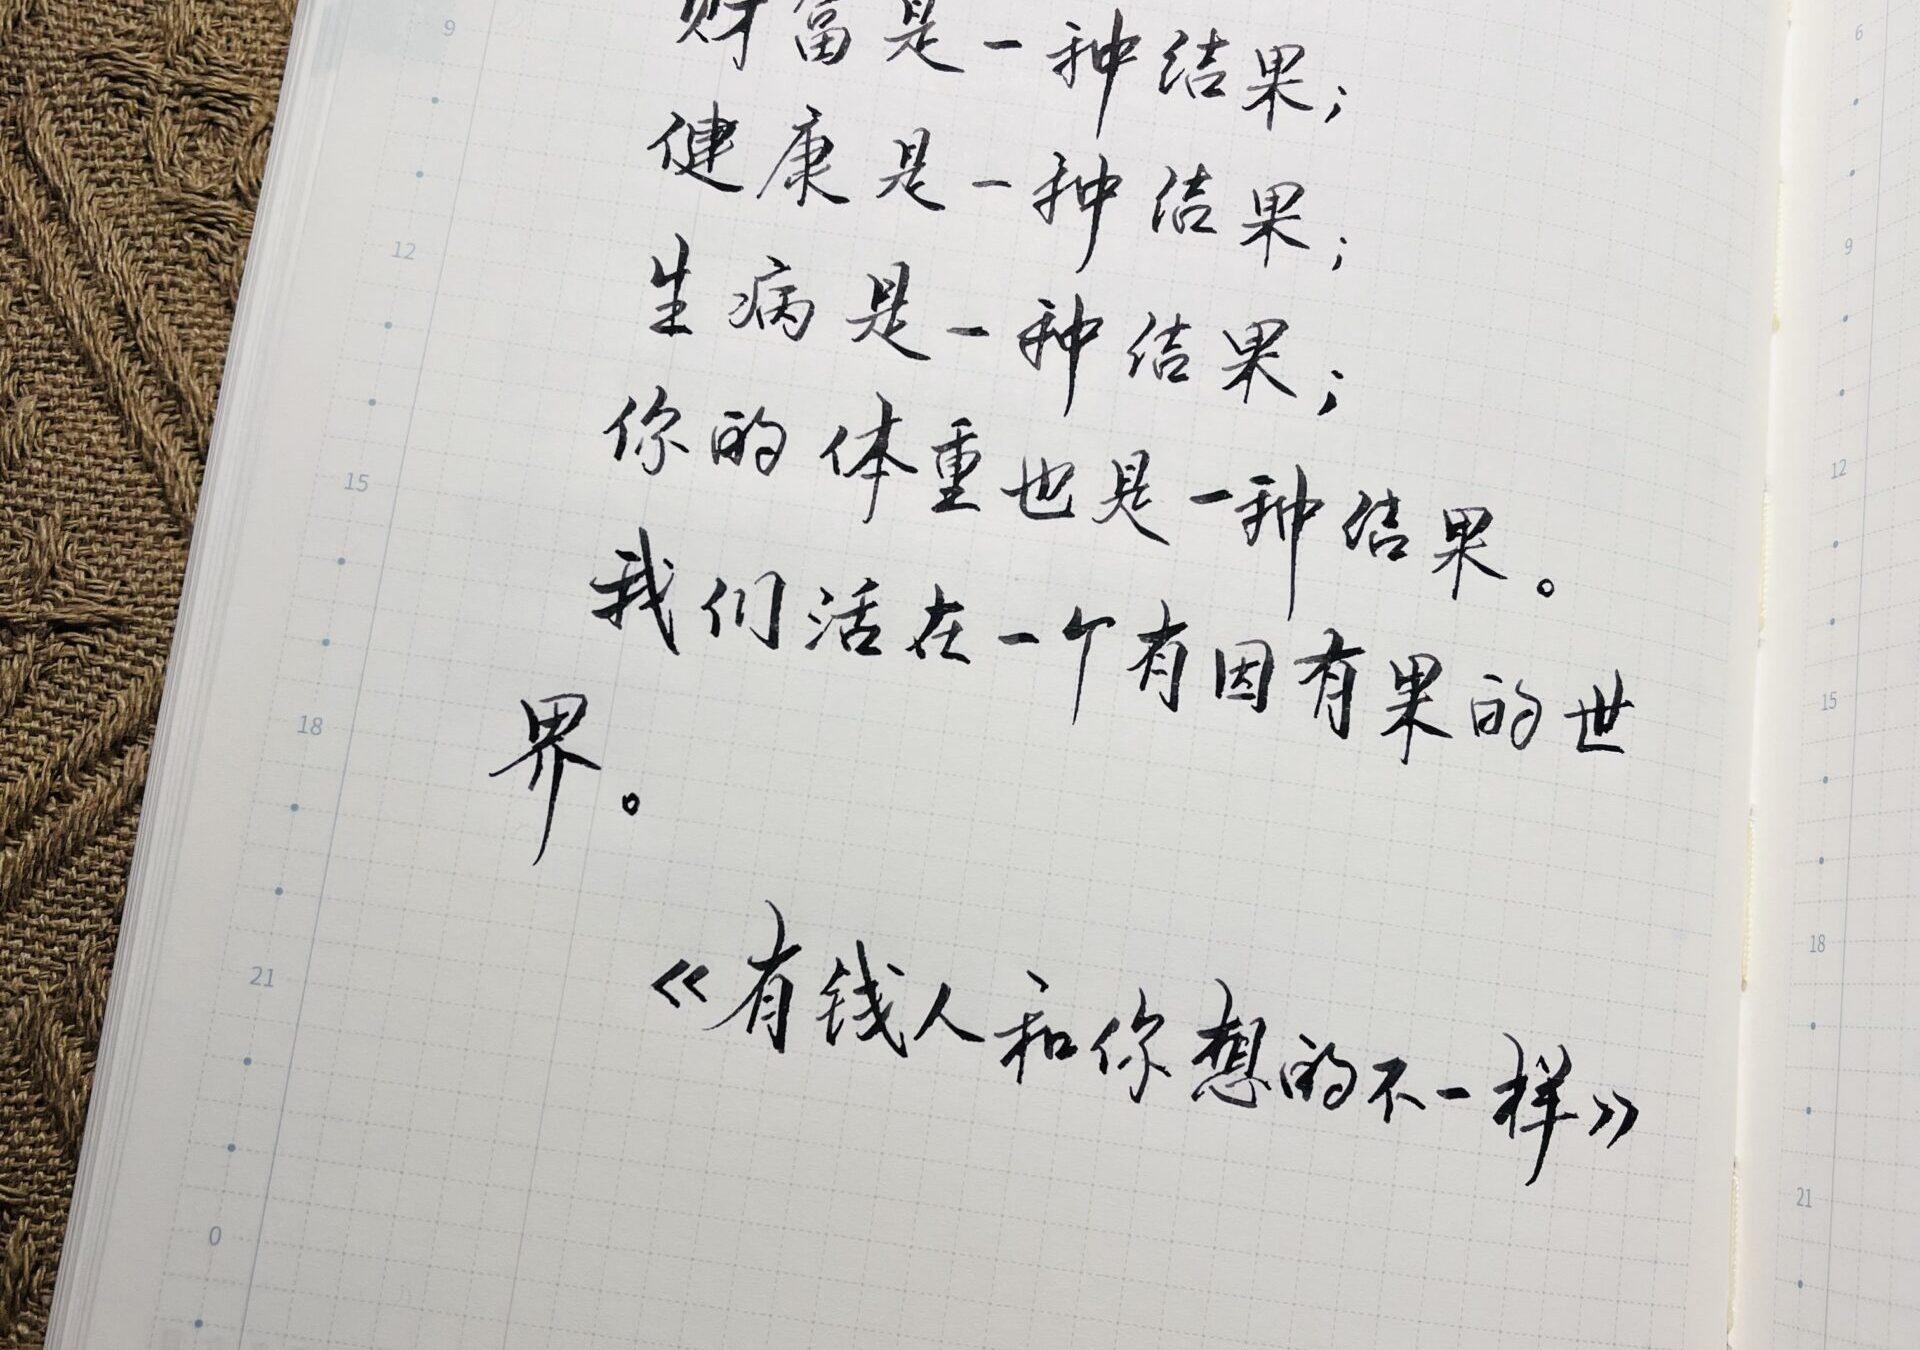 9
财富是一种结果;
健康是一种结果;
12
生病是一种结果;
你的体重也是一种结果。
15
我们活在一个有因有果的世
18
界。
21
《有钱人和你想的不一样》
0
6
9
12
15
18
21